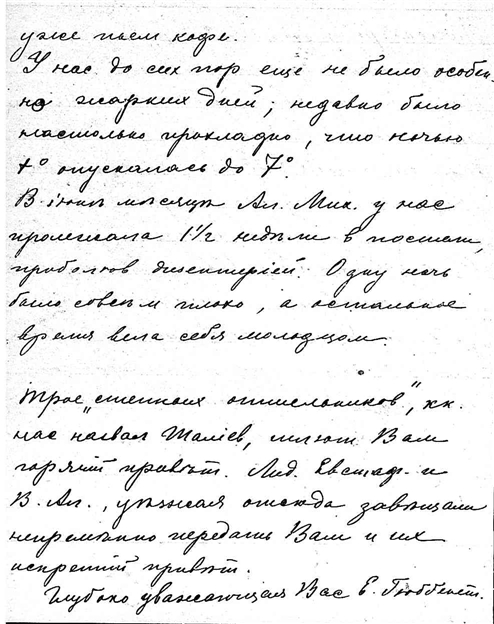 уже пьем кофе.
У нас до сих пор еще не было особен-
но жарких дней; недавно было
настолько прохладно, что ночью
t° опускалась до 7°.
В іюнѣ мѣсяцѣ Ал. Мих. у нас
пролежала 1½ недѣли в постели,
приболѣв дизентеріей. Одну ночь
было совсѣм плохо, а остальное
время вела себя молодцом.
Трое „степных отшельников", кк.
нас назвал Таліев, шлют Вам
горячій привѣт. Лид. Евстаф. и
В. Ал., уѣзжая отсюда завѣщали
непремѣнно передать Вам и их
искренній привѣт.
Глубоко уважающая Вас Е. Гюббенет.